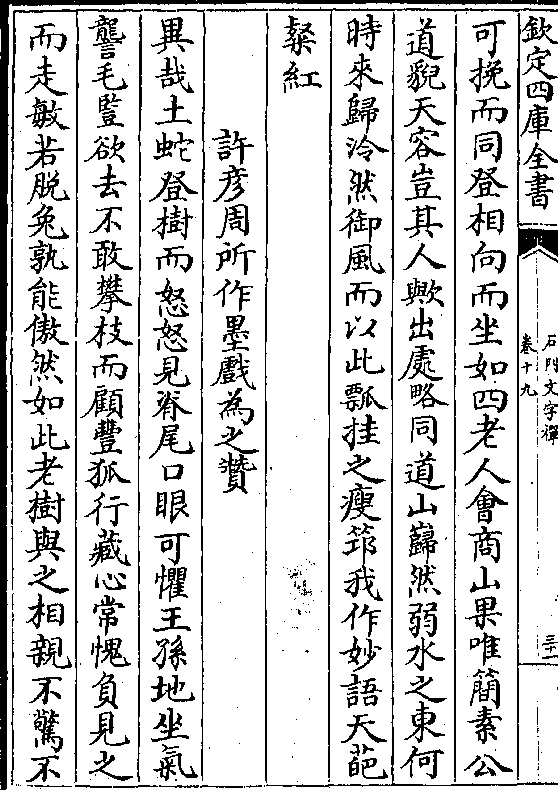 欽定四庫全書
石門文字禪
卷十九
三十一
可挽而同登相向而坐如四老人會商山果唯簡素公
道貌天容豈其人歟出處略同道山巋然弱水之東何
時來歸泠然御風而以此瓢挂之瘦筇我作妙語天葩
粲紅
許彥周所作墨戲為之贊
異哉土蛇登樹而怒怒見脊尾口眼可懼王孫地坐氣
讋毛豎欲去不敢攀枝而顧豐狐行藏心常愧負見之
而走敏若脫兔孰能傲然如此老樹與之相親不驚不